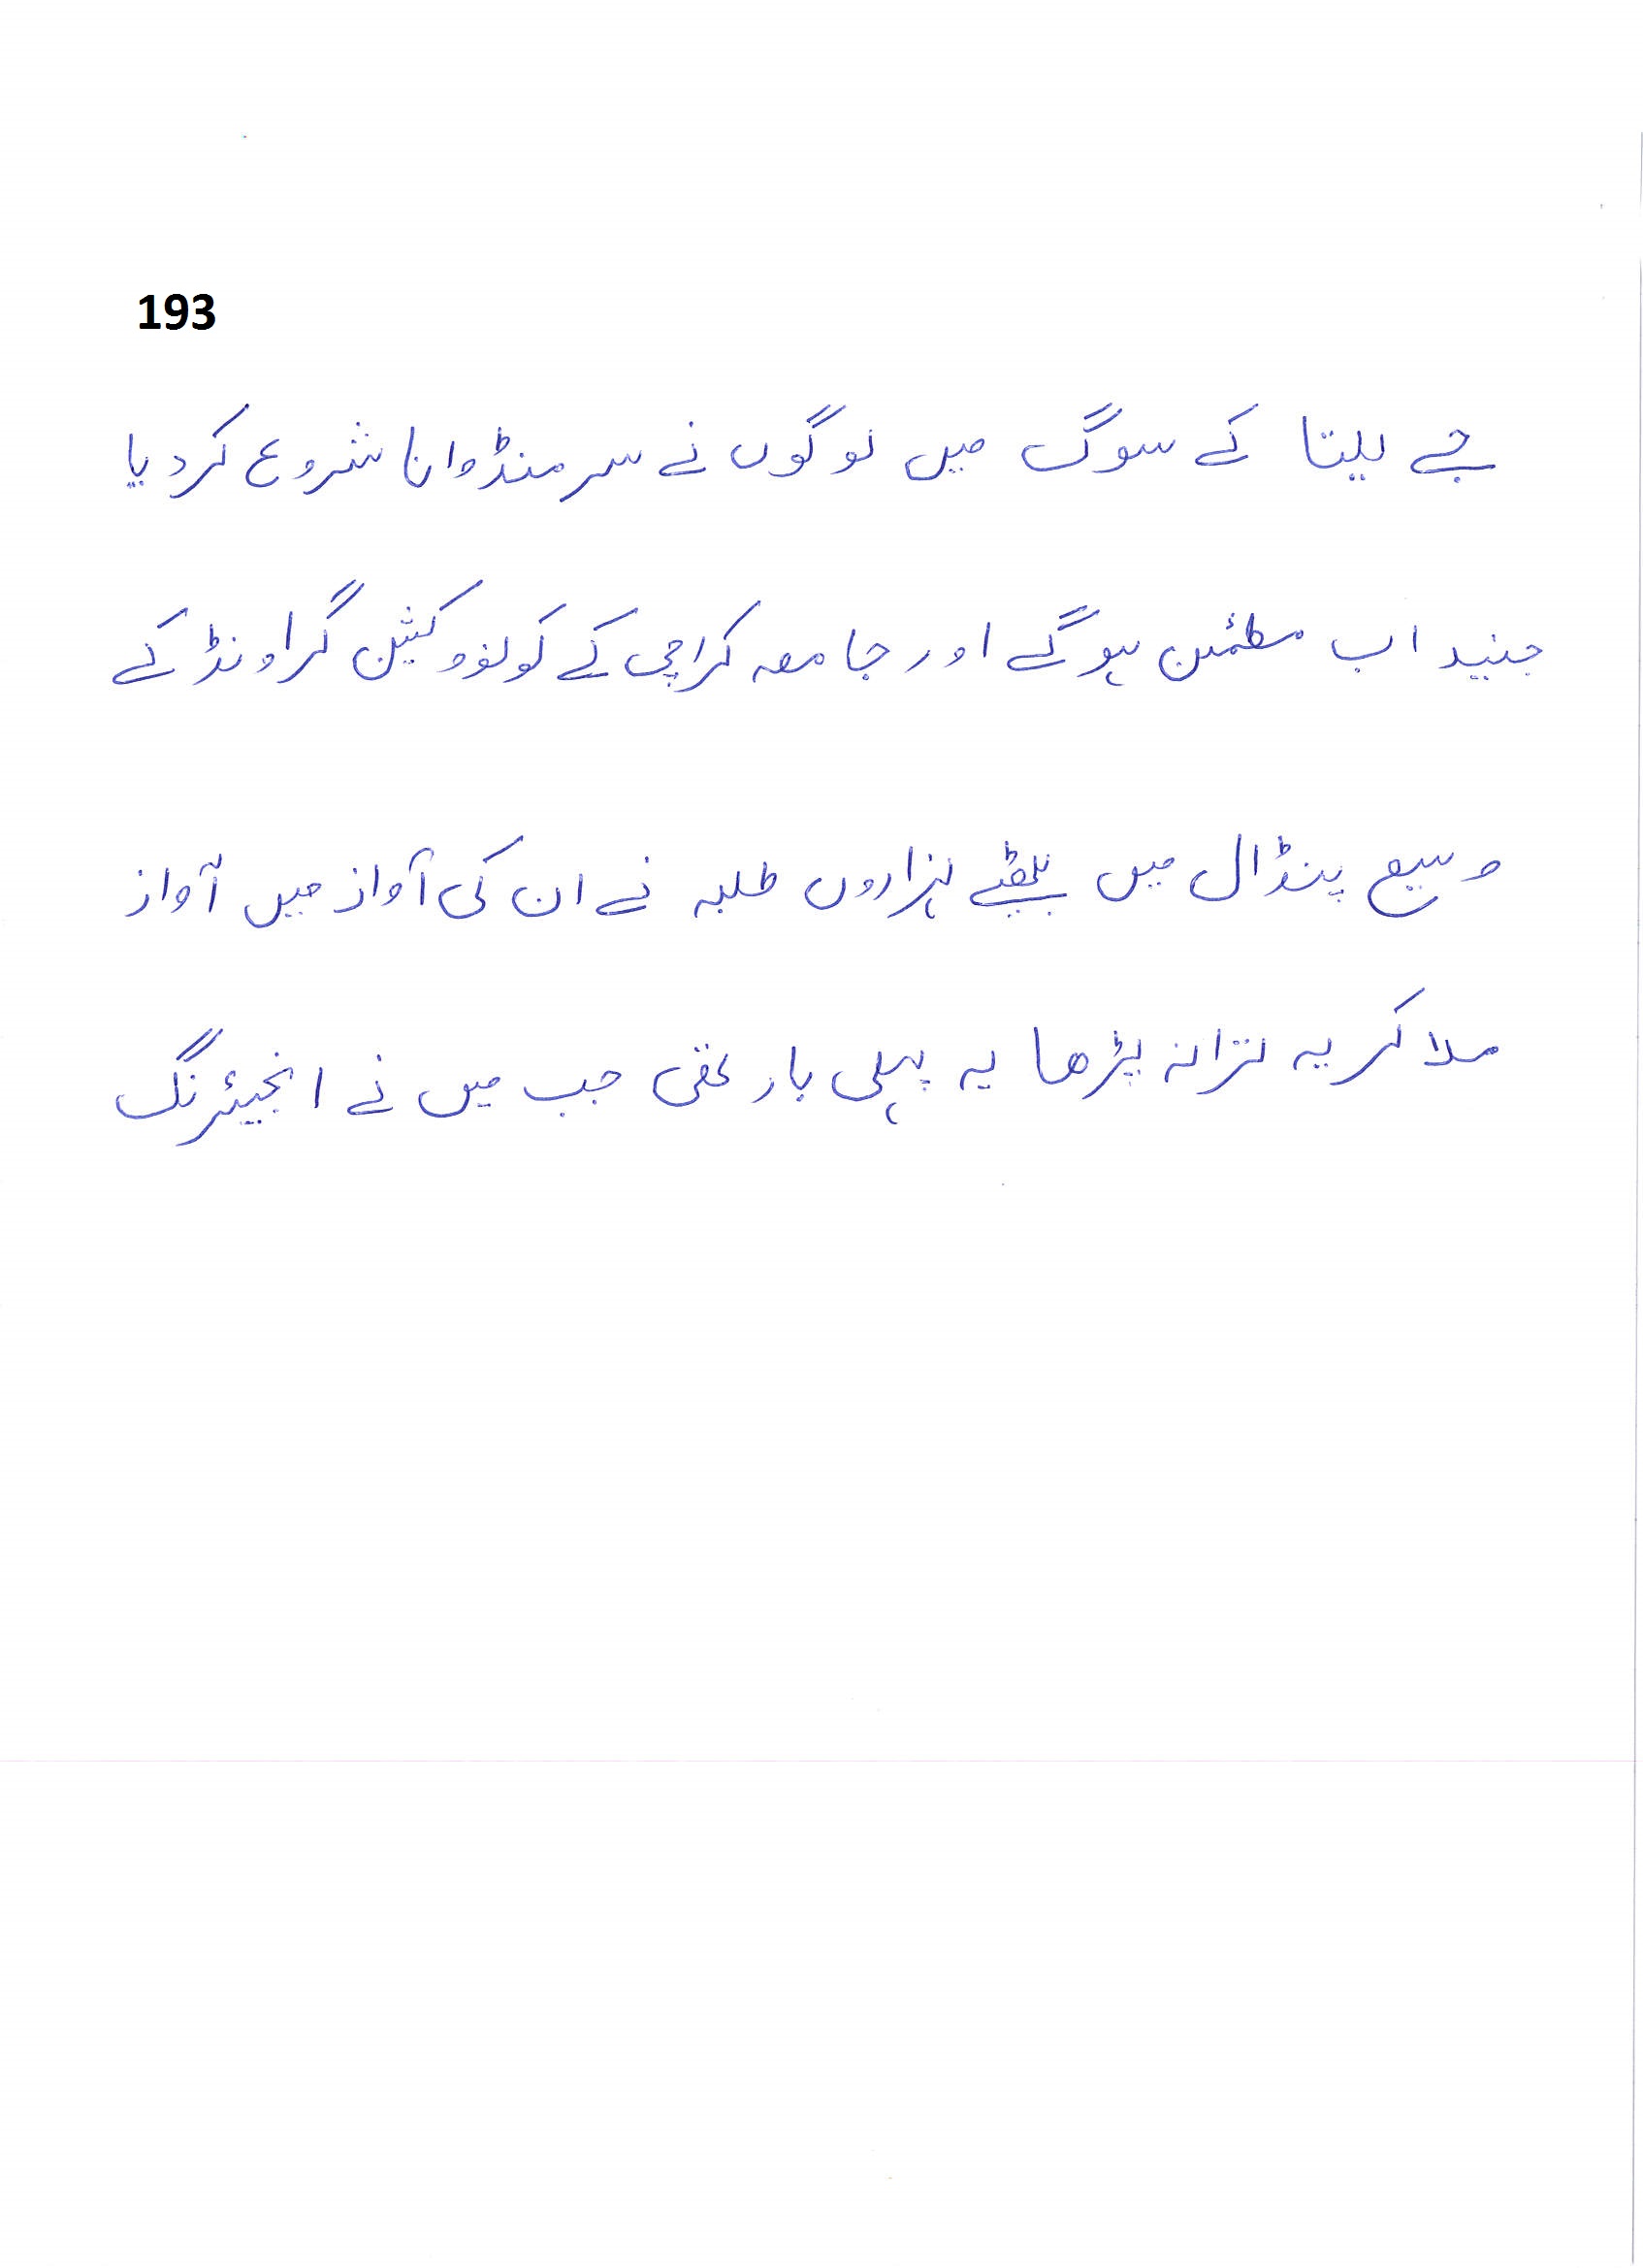 193
جے للیتا کے سوگ میں لوگوں نے سر منڈوانا شروع کر دیا
جنید اب مطمئن ہو گے اور جامعہ کراچی کے کونووکیشن گراونڈ کے
وسیع پنڈال میں بیٹھے ہزاروں طلبہ نے ان کی آواز میں آواز
ملا کر یہ ترانہ پڑھا یہ پہلی بار تھی جب میں نے انجیئرنگ